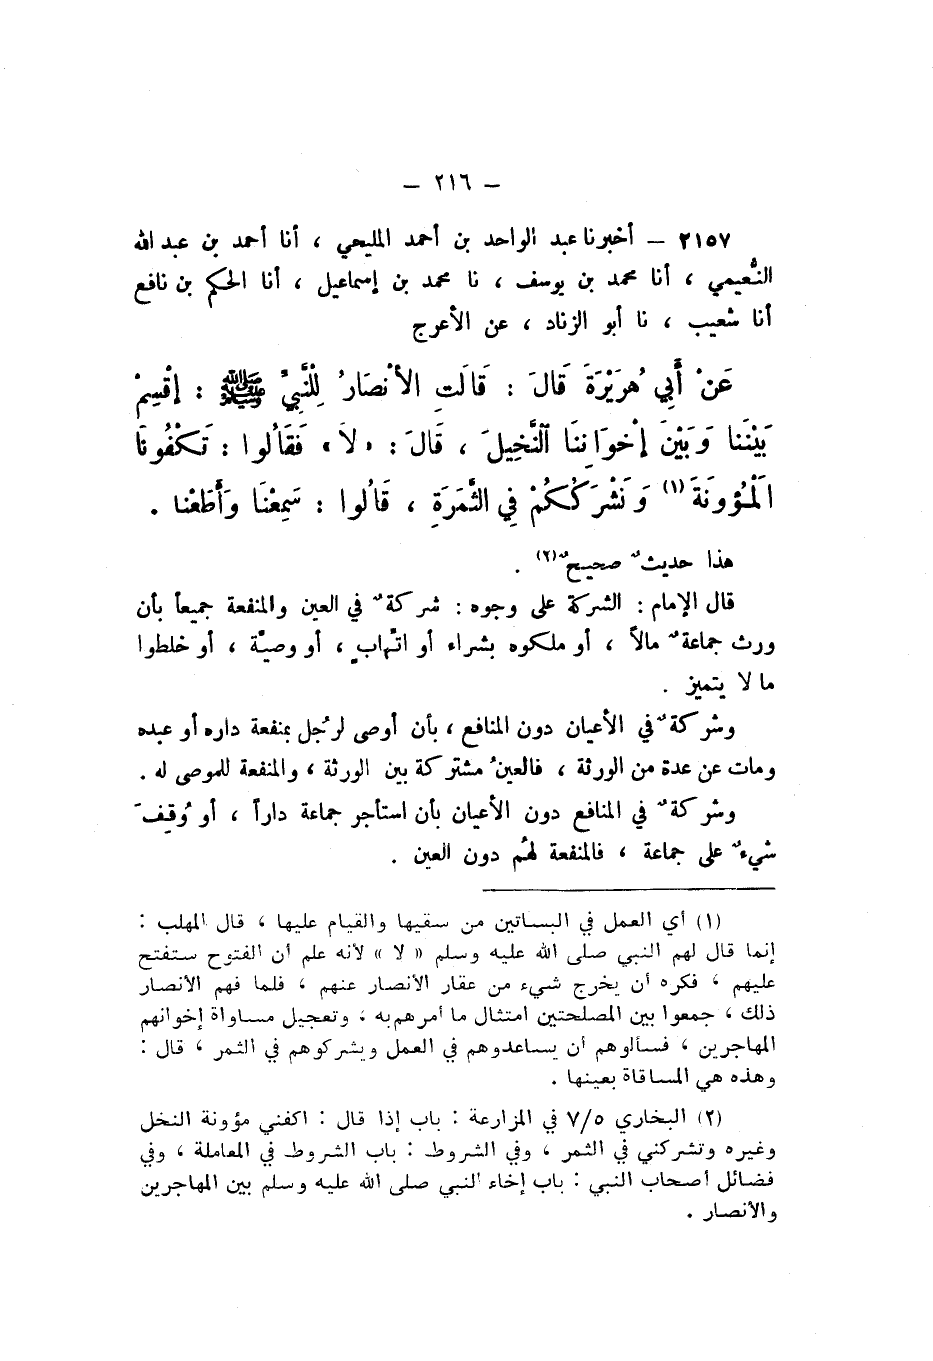 – ٢١٦ –
٢١٥٧ – أخبرنا عبد الواحد بن أحمد المليحي ، أنا أحمد بن عبد الله
النُّعيمي ، أنا محمد بن يوسف ، نا محمد بن إسماعيل ، أنا الحكم بن نافع
أنا شعيب ، نا أبو الزناد ، عن الأعرج
عَنْ أَبِي هُرَيْرَةَ قَالَ : قَالَتِ الأَنْصَارُ لِلْنَّبِيِّ ﷺ : إقْسِمْ
بَيْنَنا وَبَيْنَ إِخْوَانِنَا النَّخِيلَ ، قَالَ : « لاَ » فَقَالُوا : تَكْفُونَا
الْمَؤُونَةَ (١) وَنَشْرَكُكُمْ فِي الثَّمَرَةِ ، قَالُوا : سَمِعْنَا وَأَطَعْنا .
هذا حديثٌ صحيحٌ (٢) .
قال الإمام : الشركة على وجوه : شركةٌ في العين والمنفعة جميعاً بأن
ورث جماعةٌ مالاً ، أو ملكوه بشراء أو اتّهابٍ ، أو وصيّة ، أو خلطوا
ما لا يتميز .
وشركةٌ في الأعيان دون المنافع ، بأن أوصى لرجُل بمنفعة داره أو عبده
ومات عن عدة من الورثة ، فالعينُ مشتركة بين الورثة ، والمنفعة للموصى له .
وشركةٌ في المنافع دون الأعيان بأن استأجر جماعة داراً ، أو وُقِفَ
شيءٌ على جماعة ، فالمنفعة لهُم دون العين .
(١) أي العمل في البساتين من سقيها والقيام عليها ، قال المهلب :
إنما قال لهم النبي صلى الله عليه وسلم « لا » لأنه علم أن الفتوح ستفتح
عليهم ، فكره أن يخرج شيء من عقار الأنصار عنهم ، فلما فهم الأنصار
ذلك ، جمعوا بين المصلحتين امتثال ما أمرهم به ، وتعجيل مساواة إخوانهم
المهاجرين ، فسألوهم أن يساعدوهم في العمل ويشركوهم في الثمر ، قال :
وهذه هي المساقاة بعينها .
(٢) البخاري ٧/٥ في المزارعة : باب إذا قال : اكفني مؤونة النخل
وغيره وتشركني في الثمر ، وفي الشروط : باب الشروط في المعاملة ، وفي
فضائل أصحاب النبي : باب إخاء النبي صلى الله عليه وسلم بين المهاجرين
والأنصار .